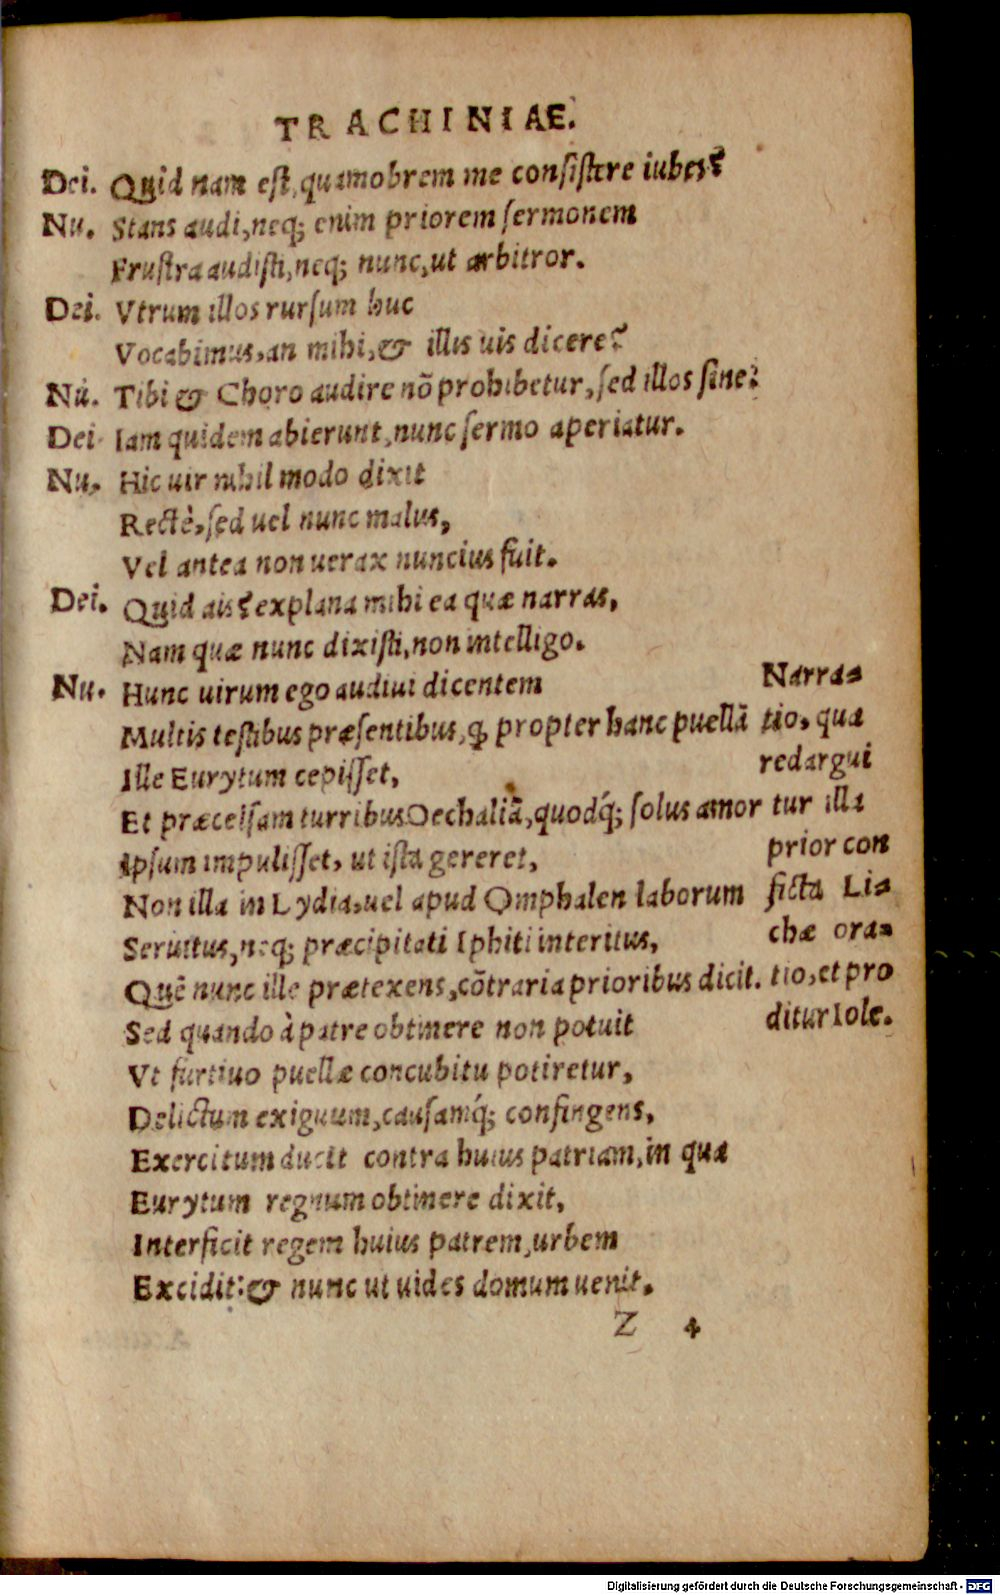 TRACHINIAE.
Dei. Quid nam est, quamobrem me consistere iubes?
Nu. Stans audi, neq; enim priorem sermonem
Frustra audisti, neq; nunc, ut arbitror.
Dei. Vtrum illos rursum huc
Vocabimus, an mihi, & illis uis dicere?
Nu. Tibi & Choro audire nõ prohibetur, sed illos sine.
Dei Iam quidem abierunt, nunc sermo aperiatur.
Nu. Hic uir nihil modo dixit
Rectè, sed uel nunc malus,
Vel antea non uerax nuncius fuit.
Dei. Quid ais? explana mihi ea quæ narras,
Nam quæ nunc dixisti, non intelligo.
Nu. Hunc uirum ego audiui dicentem
Multis testibus præsentibus, ꝙ propter hanc puellã
Ille Eurytum cepisset,
Et præcelsam turribus Oechaliã, quodq́; solus amor
Ipsum impulisset, ut ista gereret,
Non illa in Lydia, uel apud Omphalen laborum
Seruitus, neq; præcipitati Iphiti interitus,
Quẽ nunc ille prætexens, cõtraria prioribus dicit.
Sed quando à patre obtinere non potuit
Vt furtiuo puellæ concubitu potiretur,
Delictum exiguum, causamq́; confingens,
Exercitum ducit contra huius patriam, in qua
Eurytum regnum obtinere dixit,
Interficit regem huius patrem, urbem
Excidit: & nunc ut uides domum uenit.
Narra=
tio, qua
redargui
tur illa
prior con
ficta Li=
chæ ora=
tio, et pro
ditur Iole.
Z 4
Digitalisierung gefördert durch die Deutsche Forschungsgemeinschaft - DFG